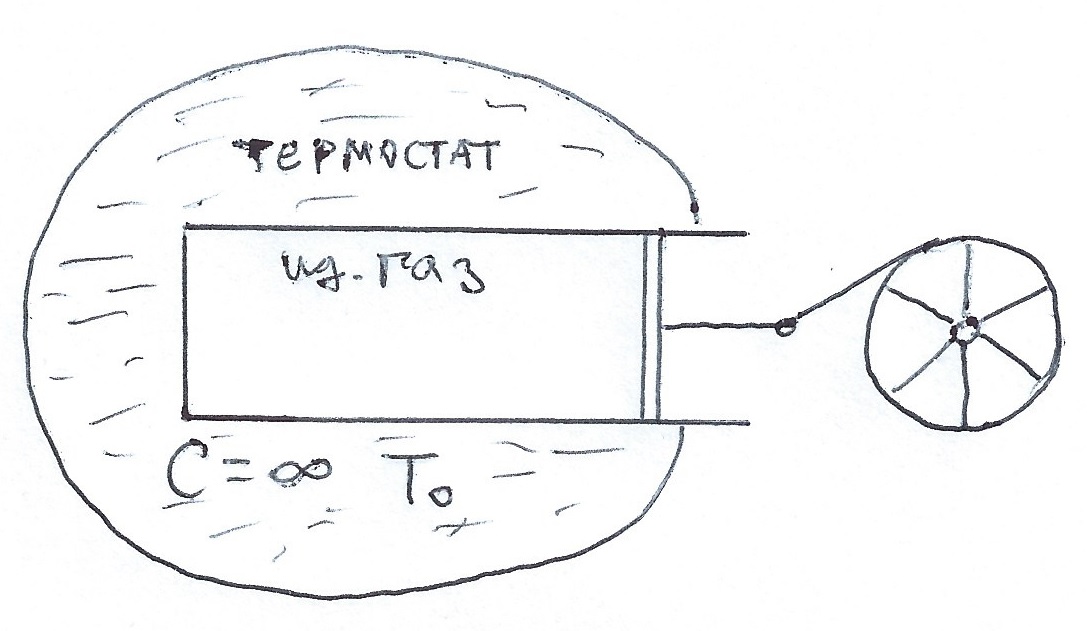 ТЕРМОСТАТ
ид. газ
C = ∞ T₀